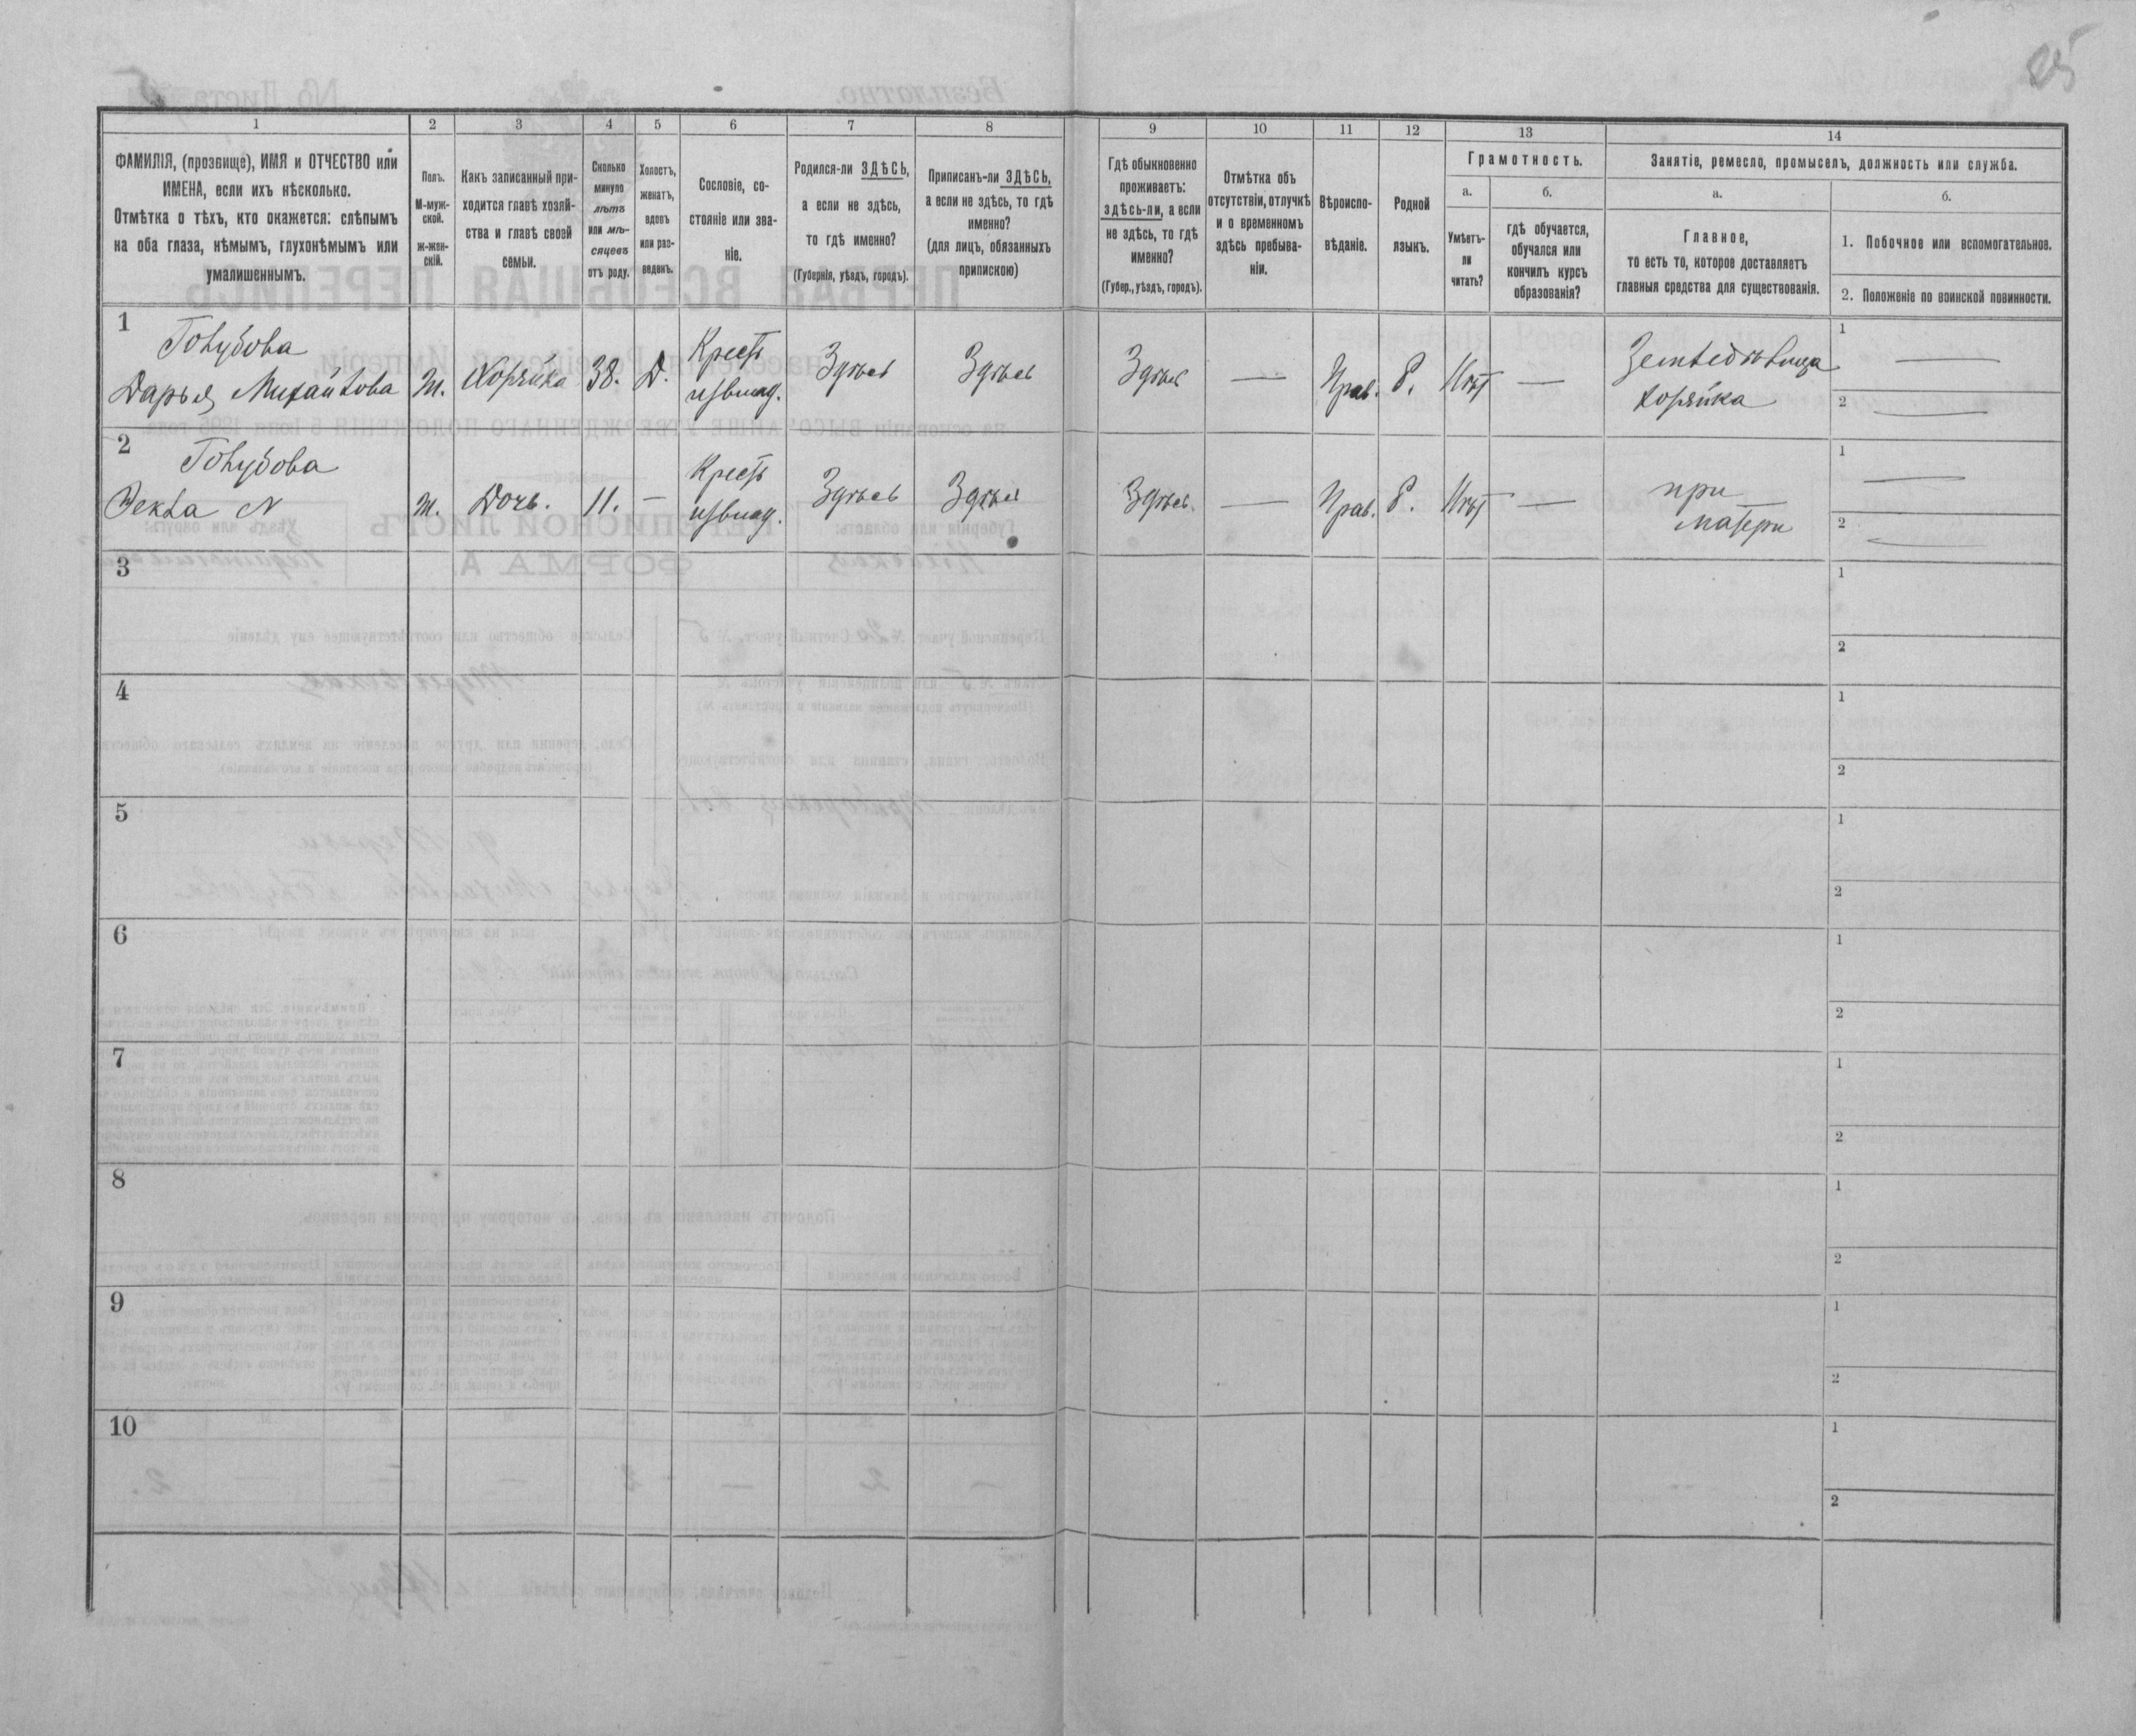 85
1
2
3
4
5
6
7
8
9
10
11
12
13
14
ФАМИЛІЯ, (прозвище), ИМЯ и ОТЧЕСТВО или
ИМЕНА, если ихъ нѣсколько.
Отмѣтка о тѣхъ, кто окажется: слѣпымъ
на оба глаза, нѣмымъ, глухонѣмымъ или
умалишеннымъ.
Полъ.
М-муж-
ской.
ж-жен-
скій.
Какъ записанный при-
ходится главѣ хозяй-
ства и главѣ своей
семьи.
Сколько
минуло
лѣтъ
или мѣ-
сяцевъ
отъ роду.
Холостъ,
женатъ,
вдовъ
или раз-
веденъ.
Сословіе, со-
стояніе или зва-
ніе.
Родился-ли ЗДѢСЬ,
а если не здѣсь,
то гдѣ именно?
(Губернія, уѣздъ, городъ).
Приписанъ-ли ЗДѢСЬ,
а если не здѣсь, то гдѣ
именно?
(для лицъ, обязанныхъ
припискою)
Гдѣ обыкновенно
проживаетъ:
здѣсь-ли, а если
не здѣсь, то гдѣ
именно?
(Губер., уѣздъ, городъ).
Отмѣтка объ
отсутствіи, отлучкѣ
и о временномъ
здѣсь пребыва-
ніи.
Вѣроиспо-
вѣданіе.
Родной
языкъ.
Грамотность.
а.
Умѣетъ-
ли
читать?
б.
гдѣ обучается,
обучался или
кончилъ курсъ
образованія?
Занятіе, ремесло, промыселъ, должность или служба.
а.
Главное,
то есть то, которое доставляетъ
главныя средства для существованія.
б.
1. Побочное или вспомогательное.
2. Положеніе по воинской повинности.
1
Голубова
Дарья Михайлова
Ж.
Хозяйка
38.
Д.
Крест
из влад.
Здѣсь
Здѣсь
Здѣсь
—
Прав.
Р.
Нѣт
—
Земледѣлица
хозяйка
1 —
2 —
2
Голубова
Фекла N
Ж.
Дочь.
11.
—
Крест
из влад.
Здѣсь
Здѣсь
Здѣсь.
—
Прав.
Р.
Нѣт
—
при
матери
1 —
2 —
3
1
2
4
1
2
5
1
2
6
1
2
7
1
2
8
1
2
9
1
2
10
1
2